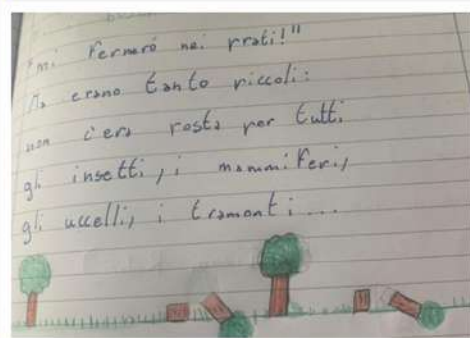 "mi fermerò nei prati!"
Ma erano tanto piccoli:
non c'era posto per tutti
gli insetti, i mammiferi,
gli uccelli, i tramonti...